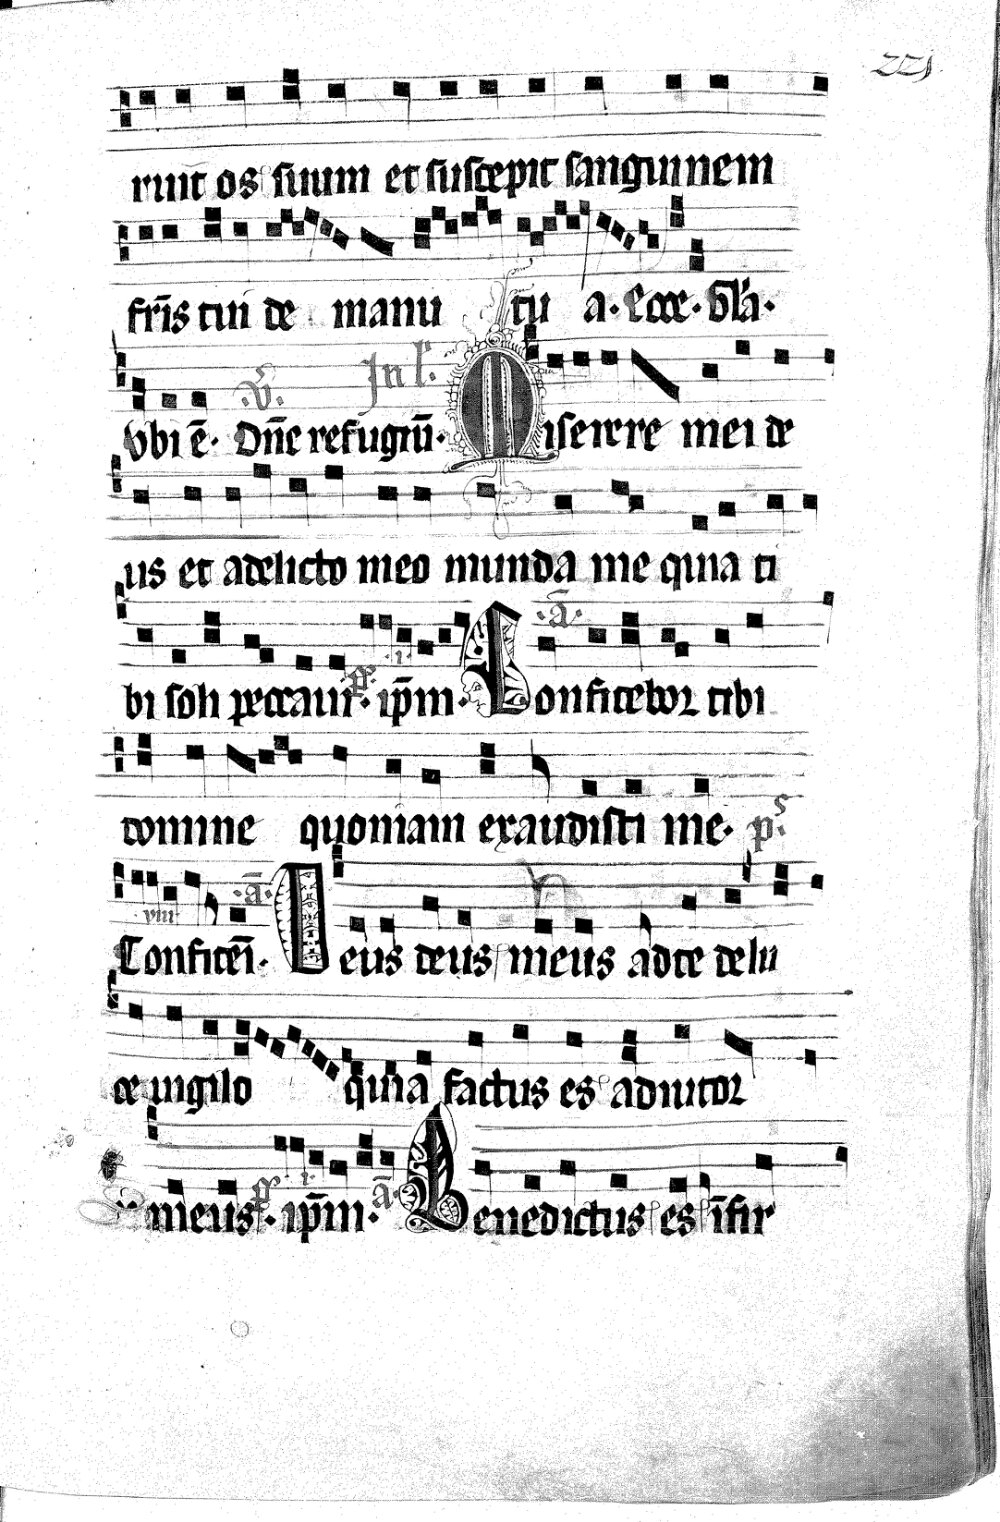 221
ruit os suum et suscepit sanguinem
fr̄is tui de manu tu a. Ecce. Gl'a.
v̄. In l'.
vbi ē. Dn̄e refugiū. Miserere mei de
us et adelicto meo munda me quia ti
ā.
bi soli peccaui. ps. ip̄m. Confitebor tibi
domine quoniam exaudisti me. ps.
viii ā.
Confitem̄. Deus deus meus adte delu
ce uigilo quia factus es adiutor
meus. ps. ip̄m. ā. Benedictus es īfir